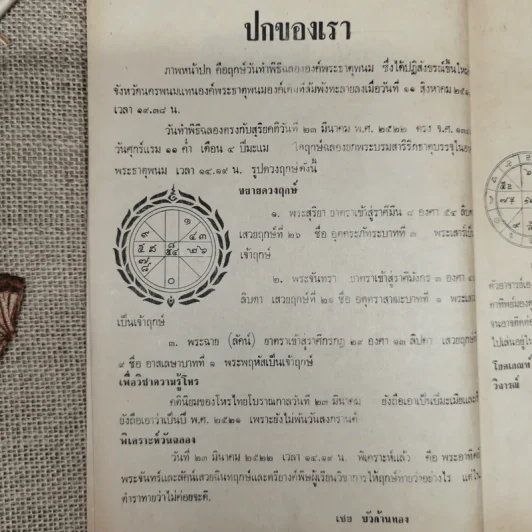 ปกของเรา
ภาพหน้าปก คือฤกษ์วันทำพิธีฉลององค์พระธาตุพนม ซึ่งได้ปฏิสังขรณ์ขึ้นใหม่
จังหวัดนครพนมแทนองค์พระธาตุพนมองค์เดิมที่ล้มพังทะลายลงเมื่อวันที่ ๑๑ สิงหาคม ๒๕๑
เวลา ๑๙.๓๘ น.
วันทำพิธีฉลองตรงกับสุริยคติวันที่ ๒๓ มีนาคม พ.ศ. ๒๕๒๒ ตรง จ.ศ. ๑๓๔
วันศุกร์แรม ๑๑ ค่ำ เดือน ๔ ปีมะแม ได้ฤกษ์ฉลองยกพระบรมสารีริกธาตุบรรจุในอง
พระธาตุพนม เวลา ๑๔.๑๙ น. รูปดวงฤกษ์ดังนี้
ขยายดวงฤกษ์
๑. พระสุริยา ยาตราเข้าสู่ราศีมีน ๘ องศา ๕๔ ลิบดา
เสวยฤกษ์ที่ ๒๖ ชื่อ อุตตรภัทระบาทที่ ๓ พระเสาร์เป็น
เจ้าฤกษ์
๒. พระจันทรา ยาตราเข้าสู่ราศีมังกร ๓ องศา
ลิบดา เสวยฤกษ์ที่ ๒๑ ชื่อ อุตราสาฒะบาทที่ ๑ พระเส
เป็นเจ้าฤกษ์
๓. พระฉาย (ลัคน์) ยาตราเข้าสู่ราศีกรกฎ ๒๙ องศา ๑๓ ลิปดา เสวยฤกษ์ที่
๙ ชื่อ อาสเลษาบาทที่ ๑ พระพฤหัสเป็นเจ้าฤกษ์
เพื่อวิชาความรู้โหร
คตินิยมของโหรไทยโบราณกาลวันที่ ๒๓ มีนาคม ยังถือเอาเป็นปีมะเมียและ
ยังถือเอาว่าเป็นปี พ.ศ. ๒๕๒๑ เพราะยังไม่พ้นวันสงกรานต์
พิเคราะห์วันฉลอง
วันที่ ๒๓ มีนาคม ๒๕๒๒ เวลา ๑๔.๑๙ น. พิเคราะห์แล้ว คือ พระอาทิตย์
พระจันทร์และลัคน์เสวยฉินทฤกษ์และตรียางค์พิษผู้เรียนวิชาการให้ฤกษ์ทายว่าอย่างไร แต่ใน
ตำราทายว่าไม่ค่อยจะดี.
เชย บัวก้านทอง
ตัวอาจารย์เอง
โยคเกณฑ์
วิจารณ์